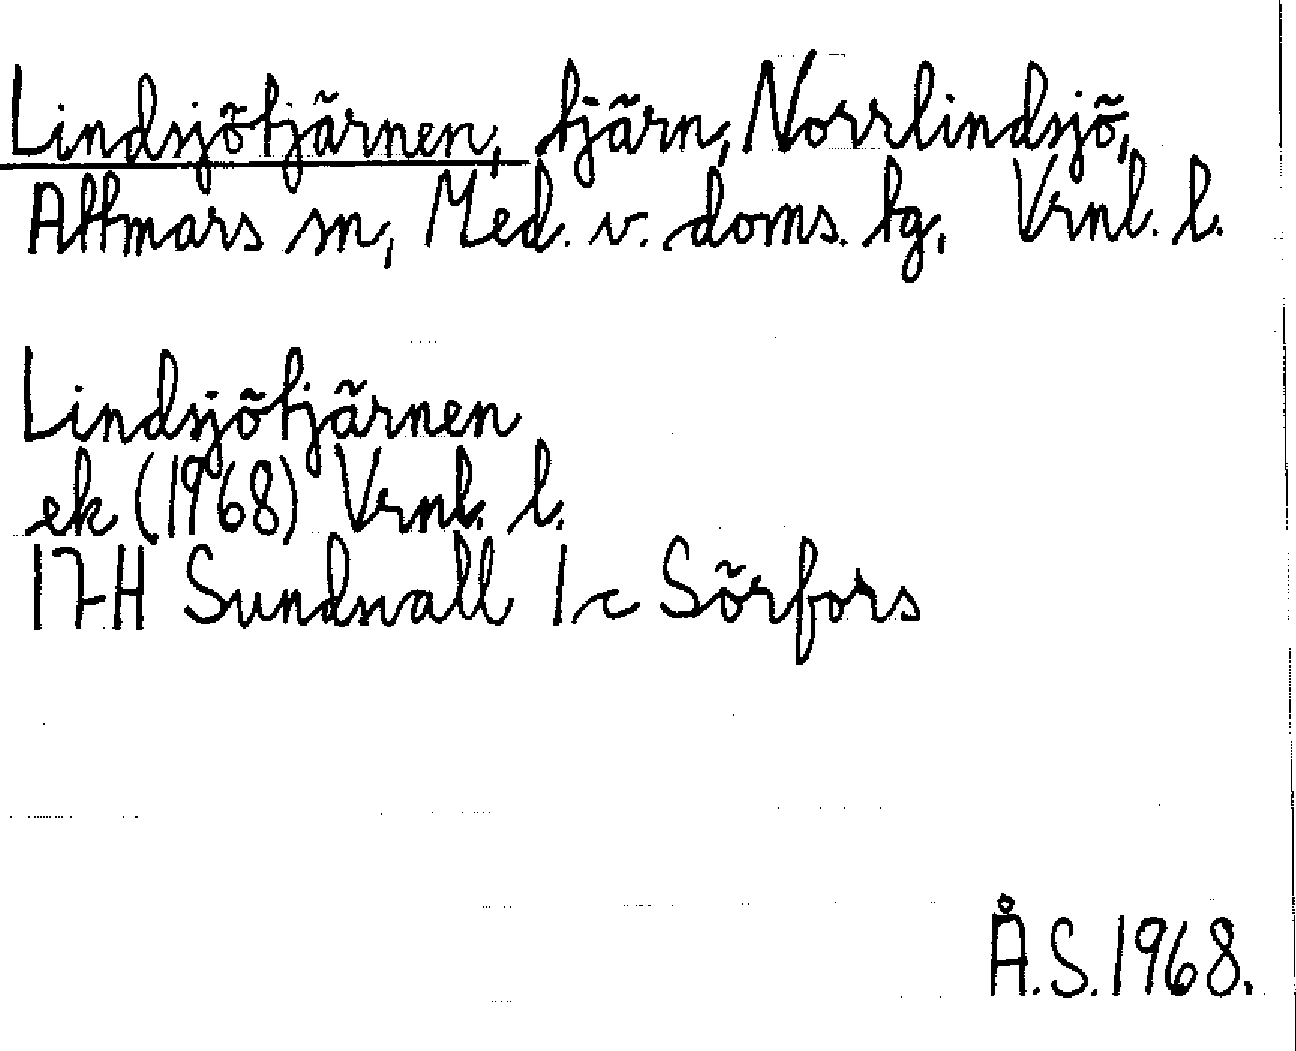 Lindsjötjärnen, tjärn, Norrlindsjö,
Attmars sn, Med. v. doms. tg, Vrnl. l.
Lindsjötjärnen
ek (1968) Vrnl. l.
17H Sundsvall 1 c Sörfors
Å.S. 1968.